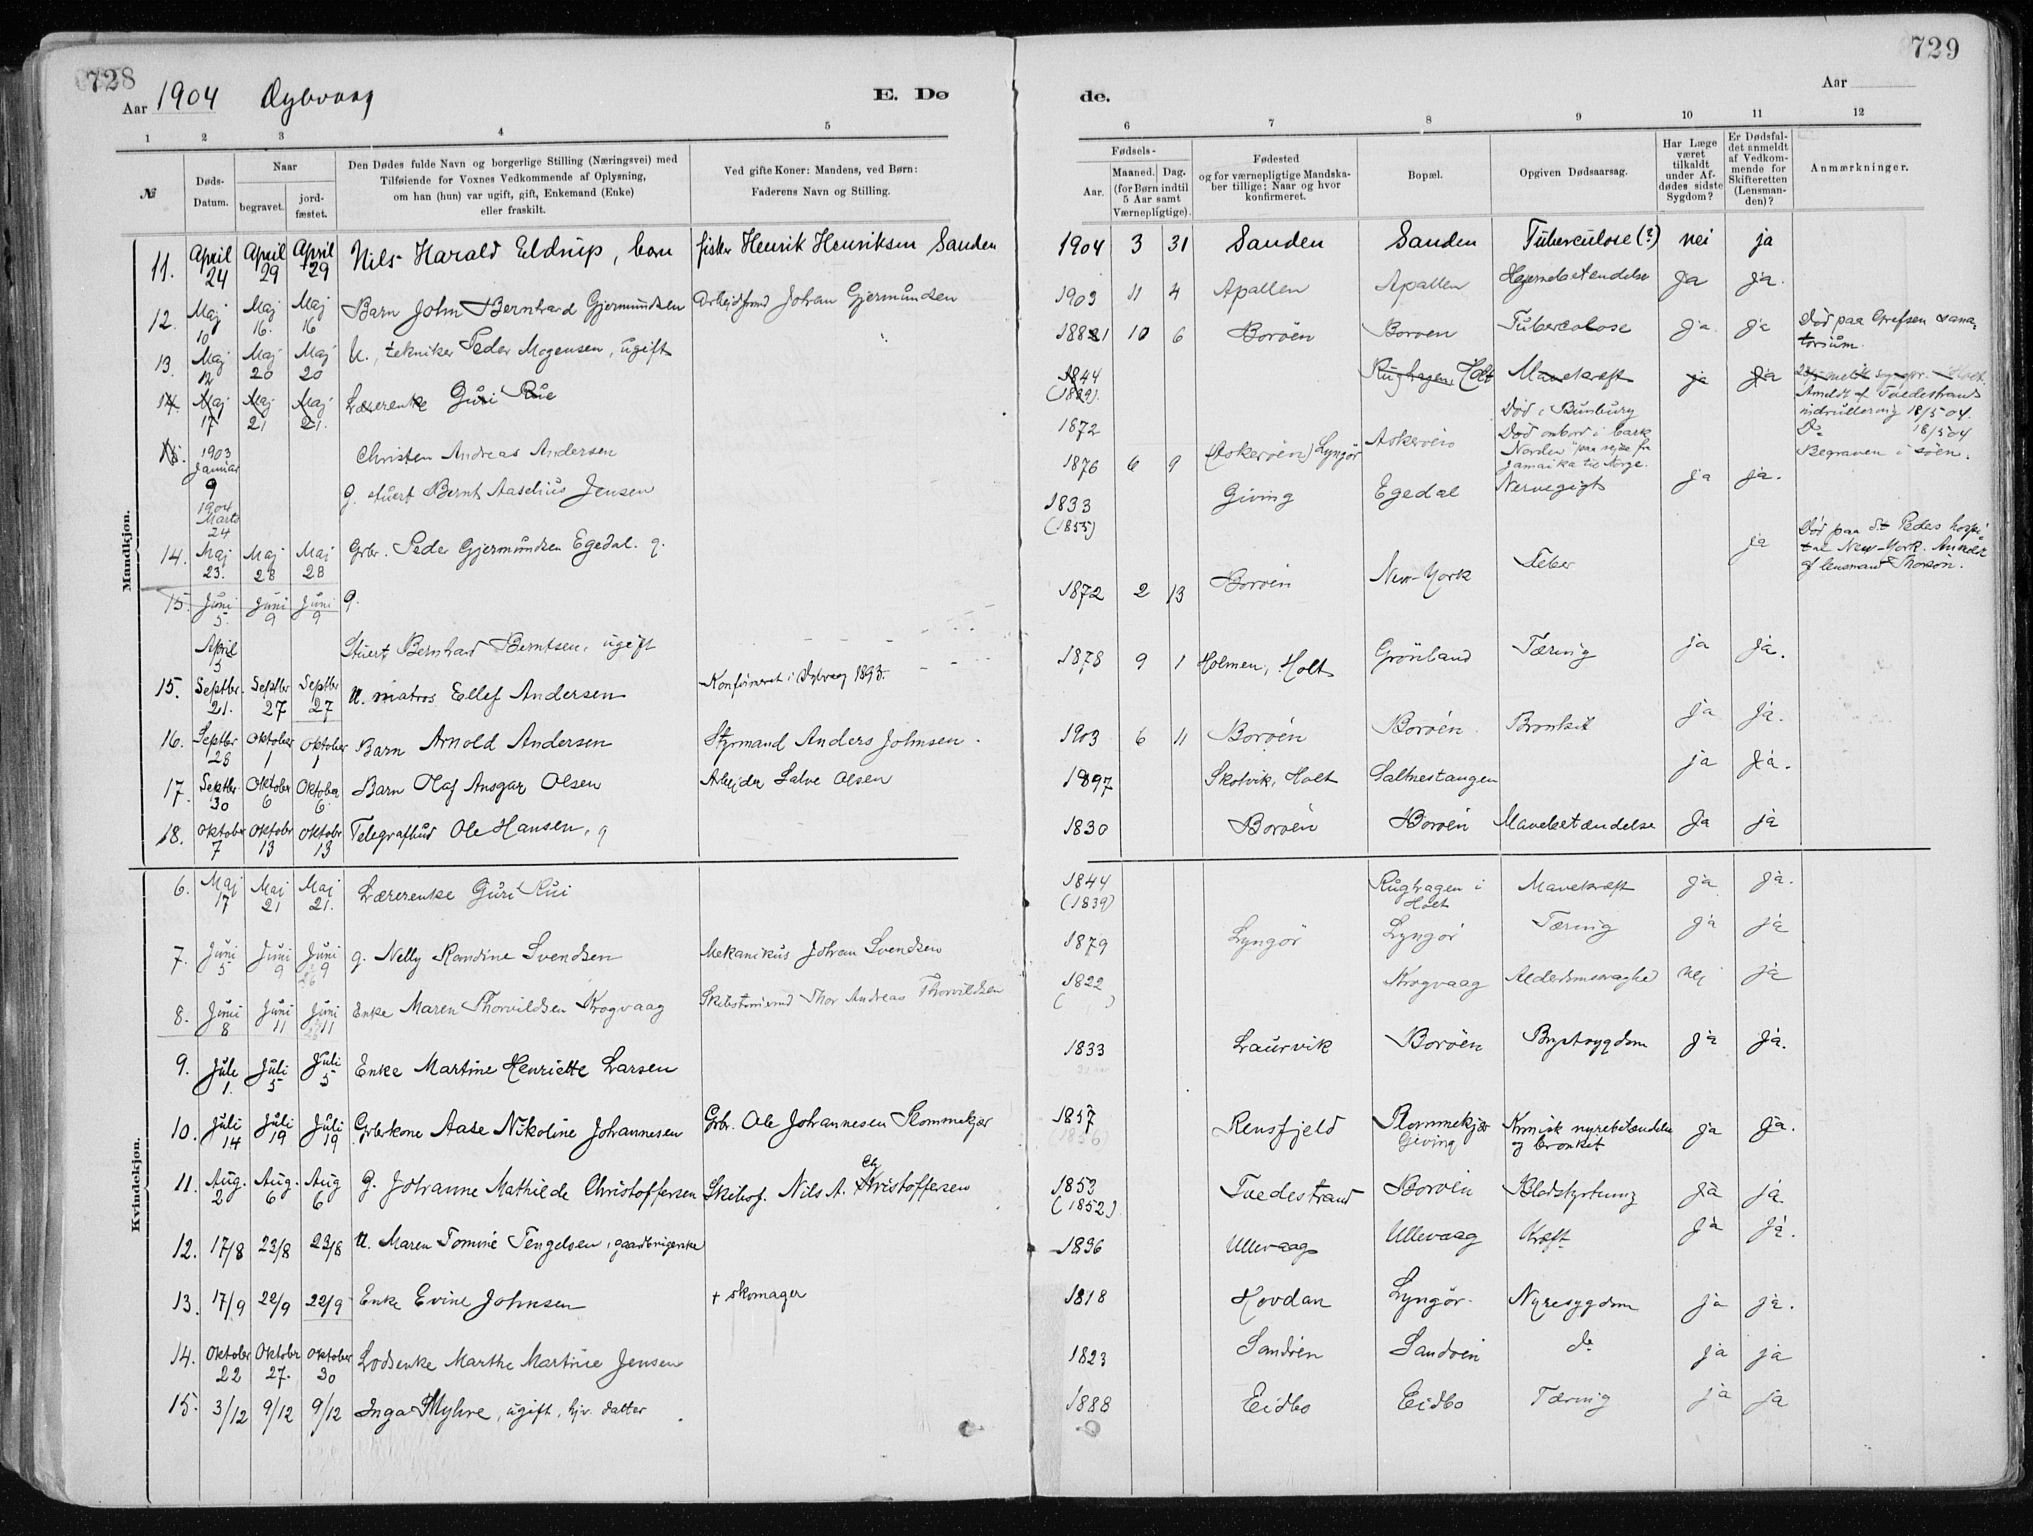 728
Aar 1904 Dybvaag
E. Dø
1 2 3 4 5
№
Døds-
Datum.
Naar
begravet.
jord-
fæstet.
Den Dødes fulde Navn og borgerlige Stilling (Næringsvei) med
Tilføiende for Voxnes Vedkommende af Oplysning,
om han (hun) var ugift, gift, Enkemand (Enke)
eller fraskilt.
Ved gifte Koner: Mandens, ved Børn:
Faderens Navn og Stilling.
Mandkjøn.
11. April 24 April 29 April 29 Nils Harald Eldrup, barn fisker Henrik Henriksen Sanden
12. Maj 10 Maj 16. Maj 16 Barn John Bernhard Gjermundsen Arbejdsmd Johan Gjermundsen
13. Maj 12 Maj 20 Maj 20 U., tekniker Peder Mogensen, ugift
14. Maj 17 Maj 21 Maj 21. Lærerenke Guri Rue
15. 1903 Januar 9 Christen Andreas Andersen
1904 Marts 24 g. stuert Bernt Aaselius Jensen
14. Maj 23. Maj 28 Maj 28 Grbr. Peder Gjermundsen Egedal. g.
15. Juni 5. Juni 9 Juni 9 g.
April 5 Stuert Bernhard Berntsen, ugift
15. Septbr. 21. Septbr 27 Septbr 27 U. matros Ellef Andersen Konfirmeret i Dybvaag 1893.
16. Septbr 28 Oktober 1 Oktober 1 Barn Arnold Andersen Styrmand Anders Johnsen.
17. Septbr 30 Oktober 6 Oktober 6. Barn Olaf Ansgar Olsen Arbejder Salve Olsen
18. Oktober 7 Oktobr 13 Oktobr 13 Telegrafbud Ole Hansen, g
Kvindekjøn.
6. Maj 17 Maj 21 Maj 21. Lærerenke Guri Rui
7. Juni 5 Juni 9 Juni 9 g. Nelly Randine Svendsen Mekanikus Johan Svendsen
8. Juni 8 Juni 11 Juni 11 Enke Maren Thorvildsen Krogvaag Skibstømmermd Thor Andreas Thorvildsen
9. Juli 1. Juli 5 Juli 5 Enke Martine Henriette Larsen
10. Juli 14 Juli 19 Juli 19 Grbrkone Aase Nikoline Johannesen Grbr. Ole Johannesen Plommekjær
11. Aug. 2 Aug. 6 Aug 6 G. Johanne Mathilde Christoffersen Skibsf. Nils A. Christoffersen
12. 17/8 23/8 23/8 U. Maren Tomine Tengelsen, gaardbrugerenke
13. 17/9 22/9 22/9 Enke Evine Johnsen + skomager
14. Oktober 22 Oktobr 27. Oktober 30 Lodsenke Marthe Martine Jensen
15. 3/12 9/12 9/12 Inga Myhre, ugift, hjv. datter
729
Aar
de.
6 7 8 9 10 11 12
Fødsels-
Aar.
Maaned. Dag.
(for Børn indtil
5 Aar samt
Værnepligtige).
Fødested
og for værnepligtige Mandska-
ber tillige: Naar og hvor
konfirmeret.
Bopæl.
Opgiven Dødsaarsag.
Har Læge
været
tilkaldt
under Af-
dødes sidste
Sygdom?
Er Dødsfal-
det anmeldt
af Vedkom-
mende for
Skifteretten
(Lensman-
den)?
Anmærkninger.
1904 3 31 Sanden Sanden Tuberculose (?) nei ja
1903 11 4 Apallen Apallen Hjernebetændelse ja ja.
1881 10 6 Borøen Borøen Tuberculose ja ja Død paa Grefsen sana-
torium.
1844 (1839). Rughagen Holt Mavekræft ja ja
Anmldt af Tvedestrands
indrullering 18/5 04.
1872 Død i Bunbury
Do 18/5 04
1876 6 9 (Askerøen) Lyngør Askerøen Død ombord i bark
"Norden" paa rejse fra
Jamaika til Norge. Begraven i søen.
1833 (1855) Giving Egedal Nervegigt ja ja.
1872 2 13 Borøen New-York Feber ja Død paa St Peders hospi-
tal New-York. Anmeldt
af lensmand Thorsøn.
1878 9 1 Holmen, Holt Grønland Tæring ja ja.
1903 6 11 Borøen Borøen. Bronkit ja ja.
1897 Skotvik, Holt Saltnestangen ja ja.
1830 Borøen Borøen Mavebetændelse ja ja
1844 (1839) Rughagen i
Holt Mavekræft ja ja.
1879 Lyngør Lyngør Tæring ja ja
1822 ( ) Krogvaag Alderdomssvaghed nej ja
1833 Laurvik Borøen Brystsygdom ja ja.
1857 (1856) Rensfjeld Plommekjær
Giving Kronisk nyrebetændelse
og bronkit ja ja.
1853 (1852) Tvedestrand Borøen Blodstyrtning ja ja
1836 Ullevaag Ullevaag Kræft ja ja.
1818 Hovdan Lyngør. Nyresygdom ja ja.
1823 Sandøen Sandøen do ja ja
1888 Eidbo Eidbo Tæring ja ja